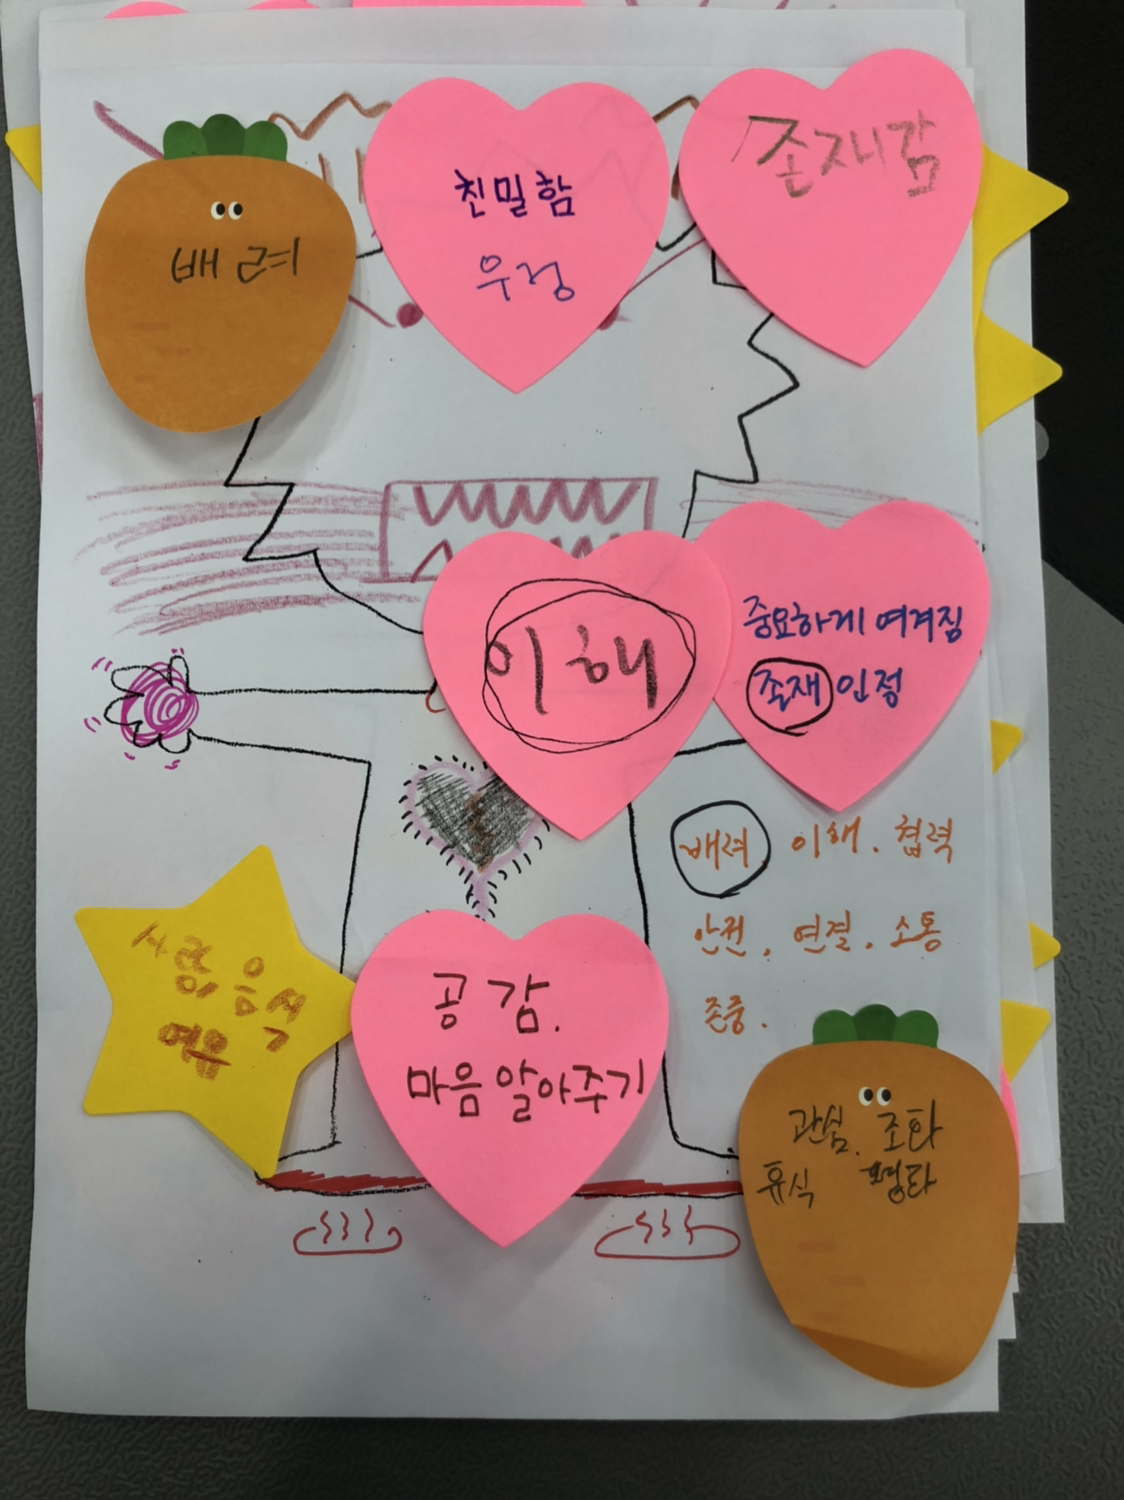 배려
친밀함
우정
존재감
이해
중요하게 여겨짐
존재 인정
배려 이해. 협력
안전. 연결. 소통
존중.
사랑, 음식
여유
공감.
마음 알아주기
관심. 조화
휴식